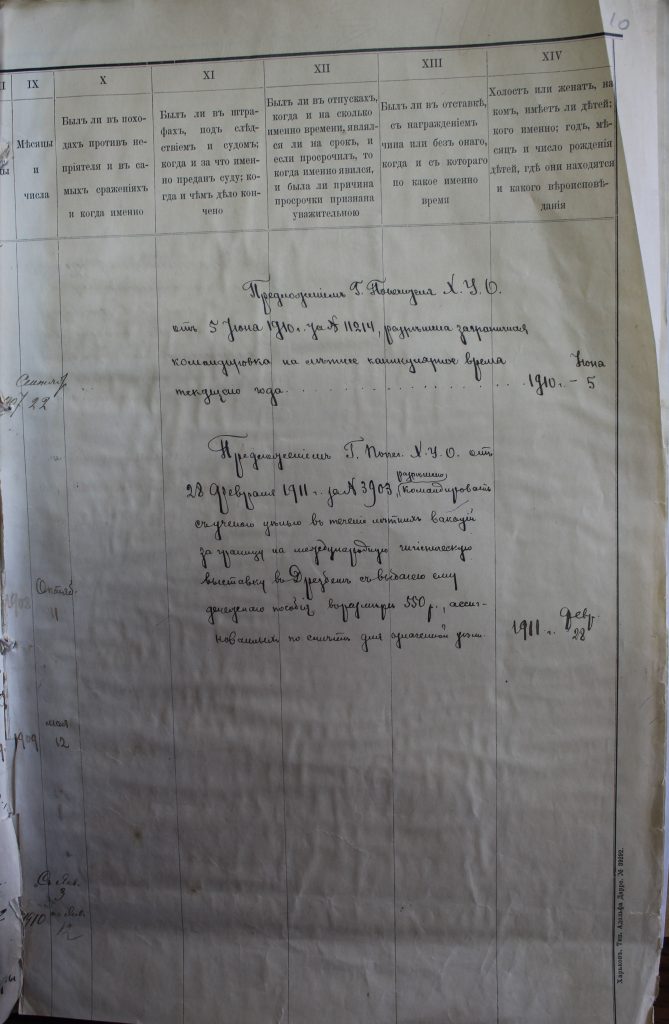 10
IX
X
XI
XII
XIII
XIV
Мѣсяцы
и
числа
Былъ ли въ похо-
дахъ противъ не-
прiятеля и въ са-
мыхъ сраженiяхъ
и когда именно
Былъ ли въ штра-
фахъ, подъ слѣд-
ствiемъ и судомъ;
когда и за что имен-
но преданъ суду; ко-
гда и чѣмъ дѣло кон-
чено
Былъ ли въ отпускахъ,
когда и на сколько
именно времени, являл-
ся ли на срокъ, и
если просрочилъ, то
когда именно явился,
и была ли причина
просрочки признана
уважительною
Былъ ли въ отставкѣ,
съ награжденiемъ
чина или безъ онаго,
когда и съ котораго
по какое именно
время
Холостъ или женатъ, на
комъ, имѣетъ ли дѣтей;
кого именно; годъ, мѣ-
сяцъ и число рожденiя
дѣтей, гдѣ они находятся
и какого вѣроисповѣ-
данiя
Предложенiемъ Г. Попечителя Х. У. О.
отъ 5 Iюня 1910 г. за № 11214, разрѣшена заграничная
командировка на лѣтнее каникулярное время
текущаго года
1910 г. Iюня
5
Сентяб.
22
Предложенiемъ Г. Попеч. Х. У. О. отъ
28 Февраля 1911 г. за № 3903, разрѣшено командировать
съ ученою цѣлью въ теченiе лѣтнихъ вакацiй
за границу на международную гигiеническую
выставку въ Дрезденѣ съ выдачею ему
денежнаго пособiя въ размѣрѣ 550 р., ассиг-
нованныхъ по смѣтѣ для означенной цѣли
1911 г. Февр.
28
1908 Октяб.
11
1909 мая
12
Съ Янв.
3
1910 по Янв.
12
Харьковъ. Тип. Адольфа Дарре. №